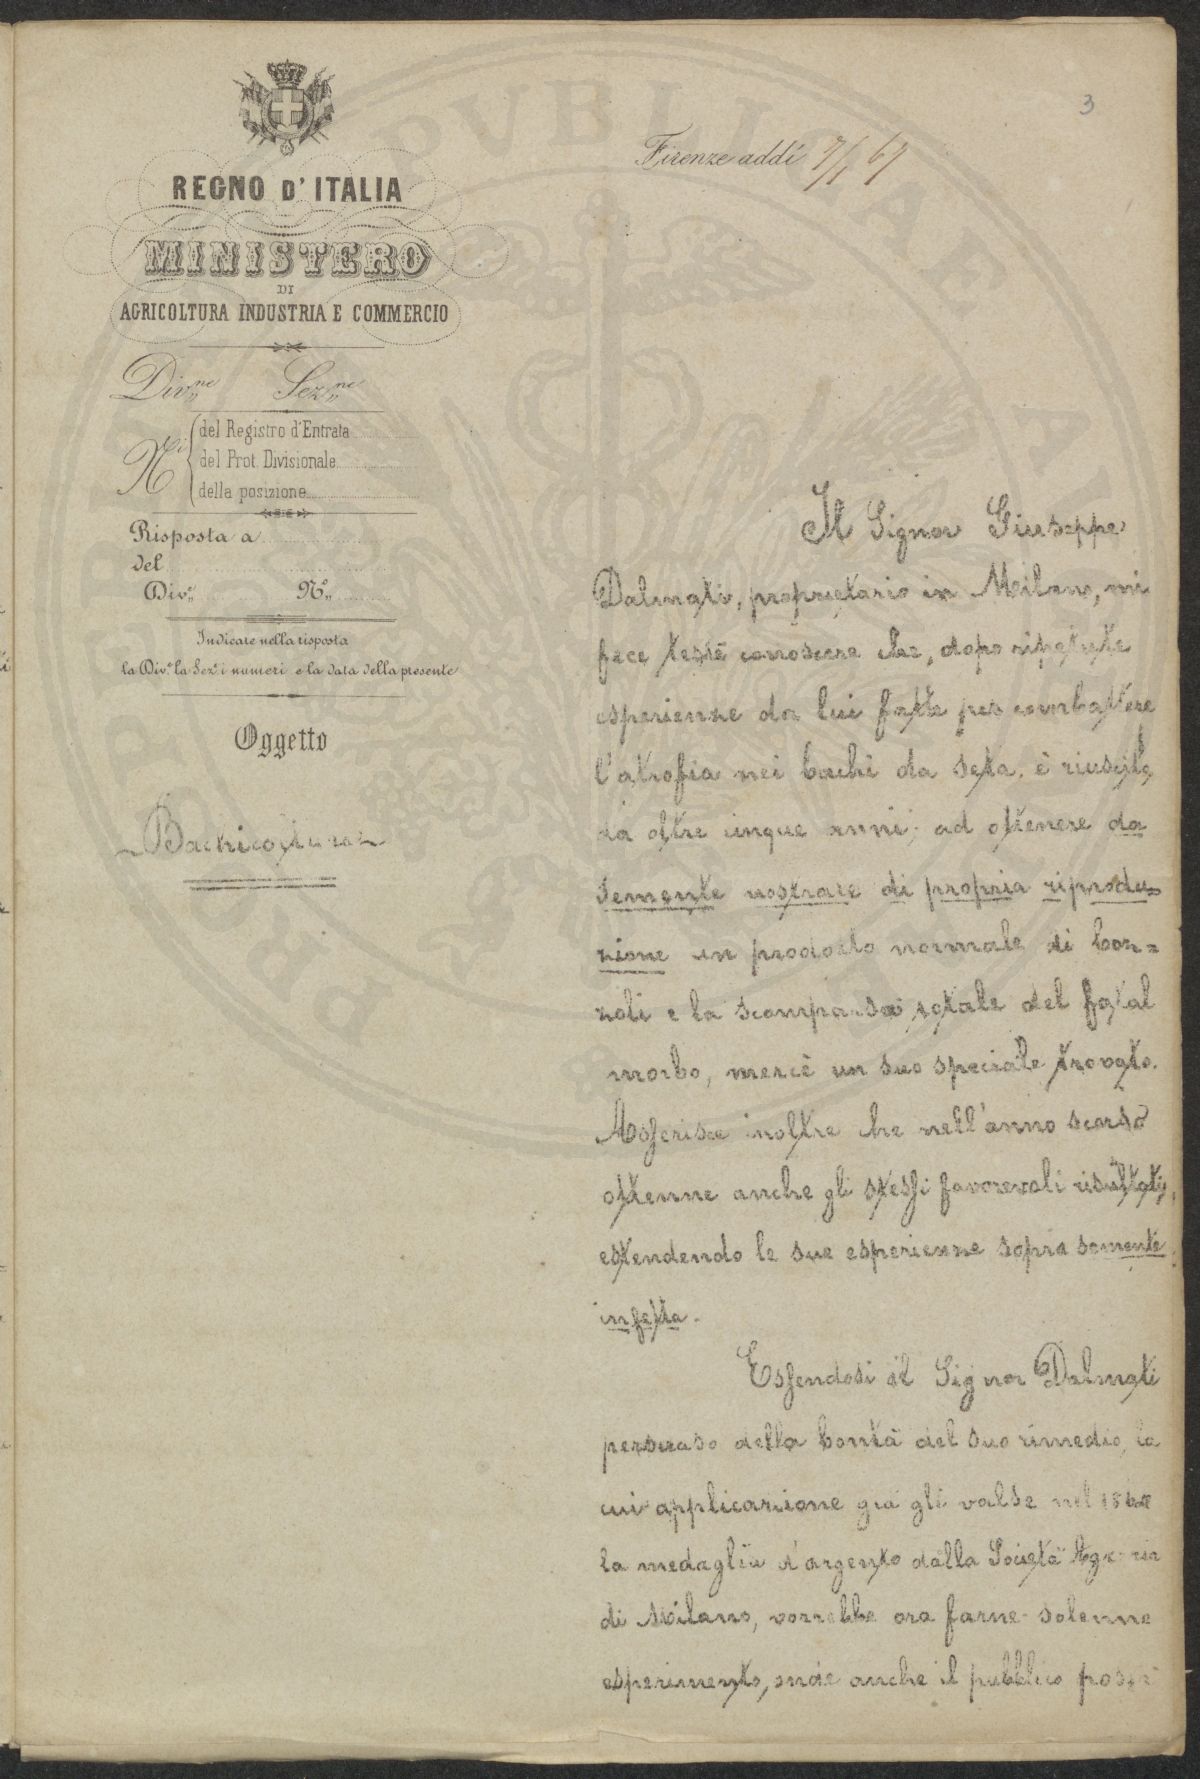 3
Firenze addì 7/1 67
REGNO D'ITALIA
MINISTERO
DI
AGRICOLTURA INDUSTRIA E COMMERCIO
Div.ne Sez.ne
N.i
del Registro d'Entrata
del Prot. Divisionale
della posizione
Risposta a
del
Div.e N.o
Indicare nella risposta
la Div.e la Sez.e i numeri e la data della presente
Oggetto
Bachicoltura
Il Signor Giuseppe
Dalmati, proprietario in Milano, mi
fece testè conoscere che, dopo ripetute
esperienze da lui fatte per combattere
l'atrofia nei bachi da seta, è riuscito,
da oltre cinque anni, ad ottenere da
semente nostrale di propria riprodu=
zione un prodotto normale di boz=
zoli e la scomparsa totale del fatal
morbo, mercè un suo speciale trovato.
Asserisce inoltre che nell'anno scorso
ottenne anche gli stessi favorevoli risultati,
estendendo le sue esperienze sopra semente
infetta.
Essendosi il Signor Dalmati
persuaso della bontà del suo rimedio, la
cui applicazione già gli valse nel
la medaglia d'argento dalla Società Agraria
di Milano, vorrebbe ora farne solenne
esperimento, onde anche il pubblico possa